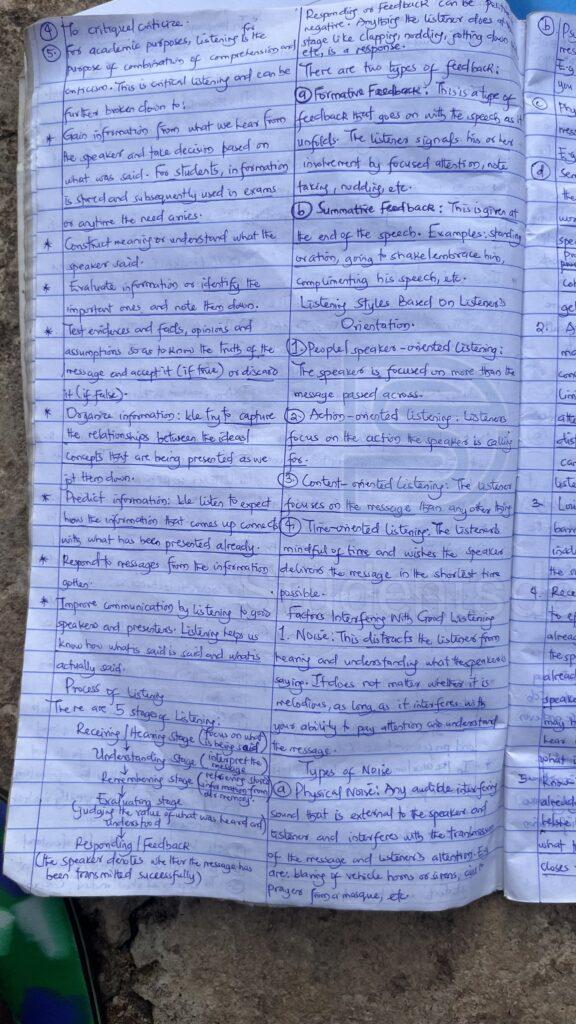 ④ To critique/criticize.
⑤ For academic purposes, listening is for the
purpose of combination of comprehension and
criticism. This is critical listening and can be
further broken down to:
* Gain information from what we hear from
the speaker and take decision based on
what was said. For students, information
is stored and subsequently used in exams
or anytime the need arises.
* Construct meaning or understand what the
speaker said.
* Evaluate information or identify the
important ones and note them down.
* Test evidences and facts, opinions and
assumptions so as to know the truth of the
message and accept it (if true) or discard
it (if false).
* Organize information: We try to capture
the relationships between the ideas/
concepts that are being presented as we
jot them down.
* Predict information: We listen to expect
how the information that comes up connects
with what has been presented already.
* Respond to messages from the information
gotten.
* Improve communication by listening to good
speakers and presenters. Listening helps us
know how what is said is said and what is
actually said.
Process of Listening
There are 5 stages of Listening:
Receiving/Hearing Stage (focus on what is being said)
↓
Understanding Stage (interpret the message)
↓
Remembering Stage (retrieving stored information from our memory)
↓
Evaluating Stage
(judging the value of what was heard and understood)
↓
Responding/Feedback
(the speaker denotes whether the message has
been transmitted successfully)
Responding or Feedback can be
negative. Anything the listener does at
stage like clapping, nodding, jotting down
etc, is a response.
There are two types of feedback:
ⓐ Formative Feedback: This is a type of
feedback that goes on with the speech as it
unfolds. The listener signals his or her
involvement by focused attention, note
taking, nodding, etc.
ⓑ Summative Feedback: This is given at
the end of the speech. Examples: standing
ovation, going to shake/embrace him,
complimenting his speech, etc.
Listening Styles Based on Listener's
Orientation.
① People/speaker-oriented Listening:
The speaker is focused on more than the
message passed across.
② Action-oriented listening: Listeners
focus on the action the speaker is calling
for.
③ Content-oriented Listening: The listener
focuses on the message than any other thing
④ Time-oriented Listening: The listener is
mindful of time and wishes the speaker
delivers the message in the shortest time
possible.
Factors Interfering With Good Listening
1. Noise: This distracts the listener from
hearing and understanding what the speaker is
saying. It does not matter whether it is
melodious, as long as it interferes with
your ability to pay attention and understand
the message.
Types of Noise
ⓐ Physical Noise: Any audible interfering
sound that is external to the speaker and
listener and interferes with the transmission
of the message and listener's attention. E.g
are: blaring of vehicle horns or sirens, call to
prayer from a mosque, etc
ⓑ
E.g
you
ⓒ
mess
E.g
ⓓ
the
2.
3.
4.
already
already
speake
may
hear
what i
5.
already
what
closes